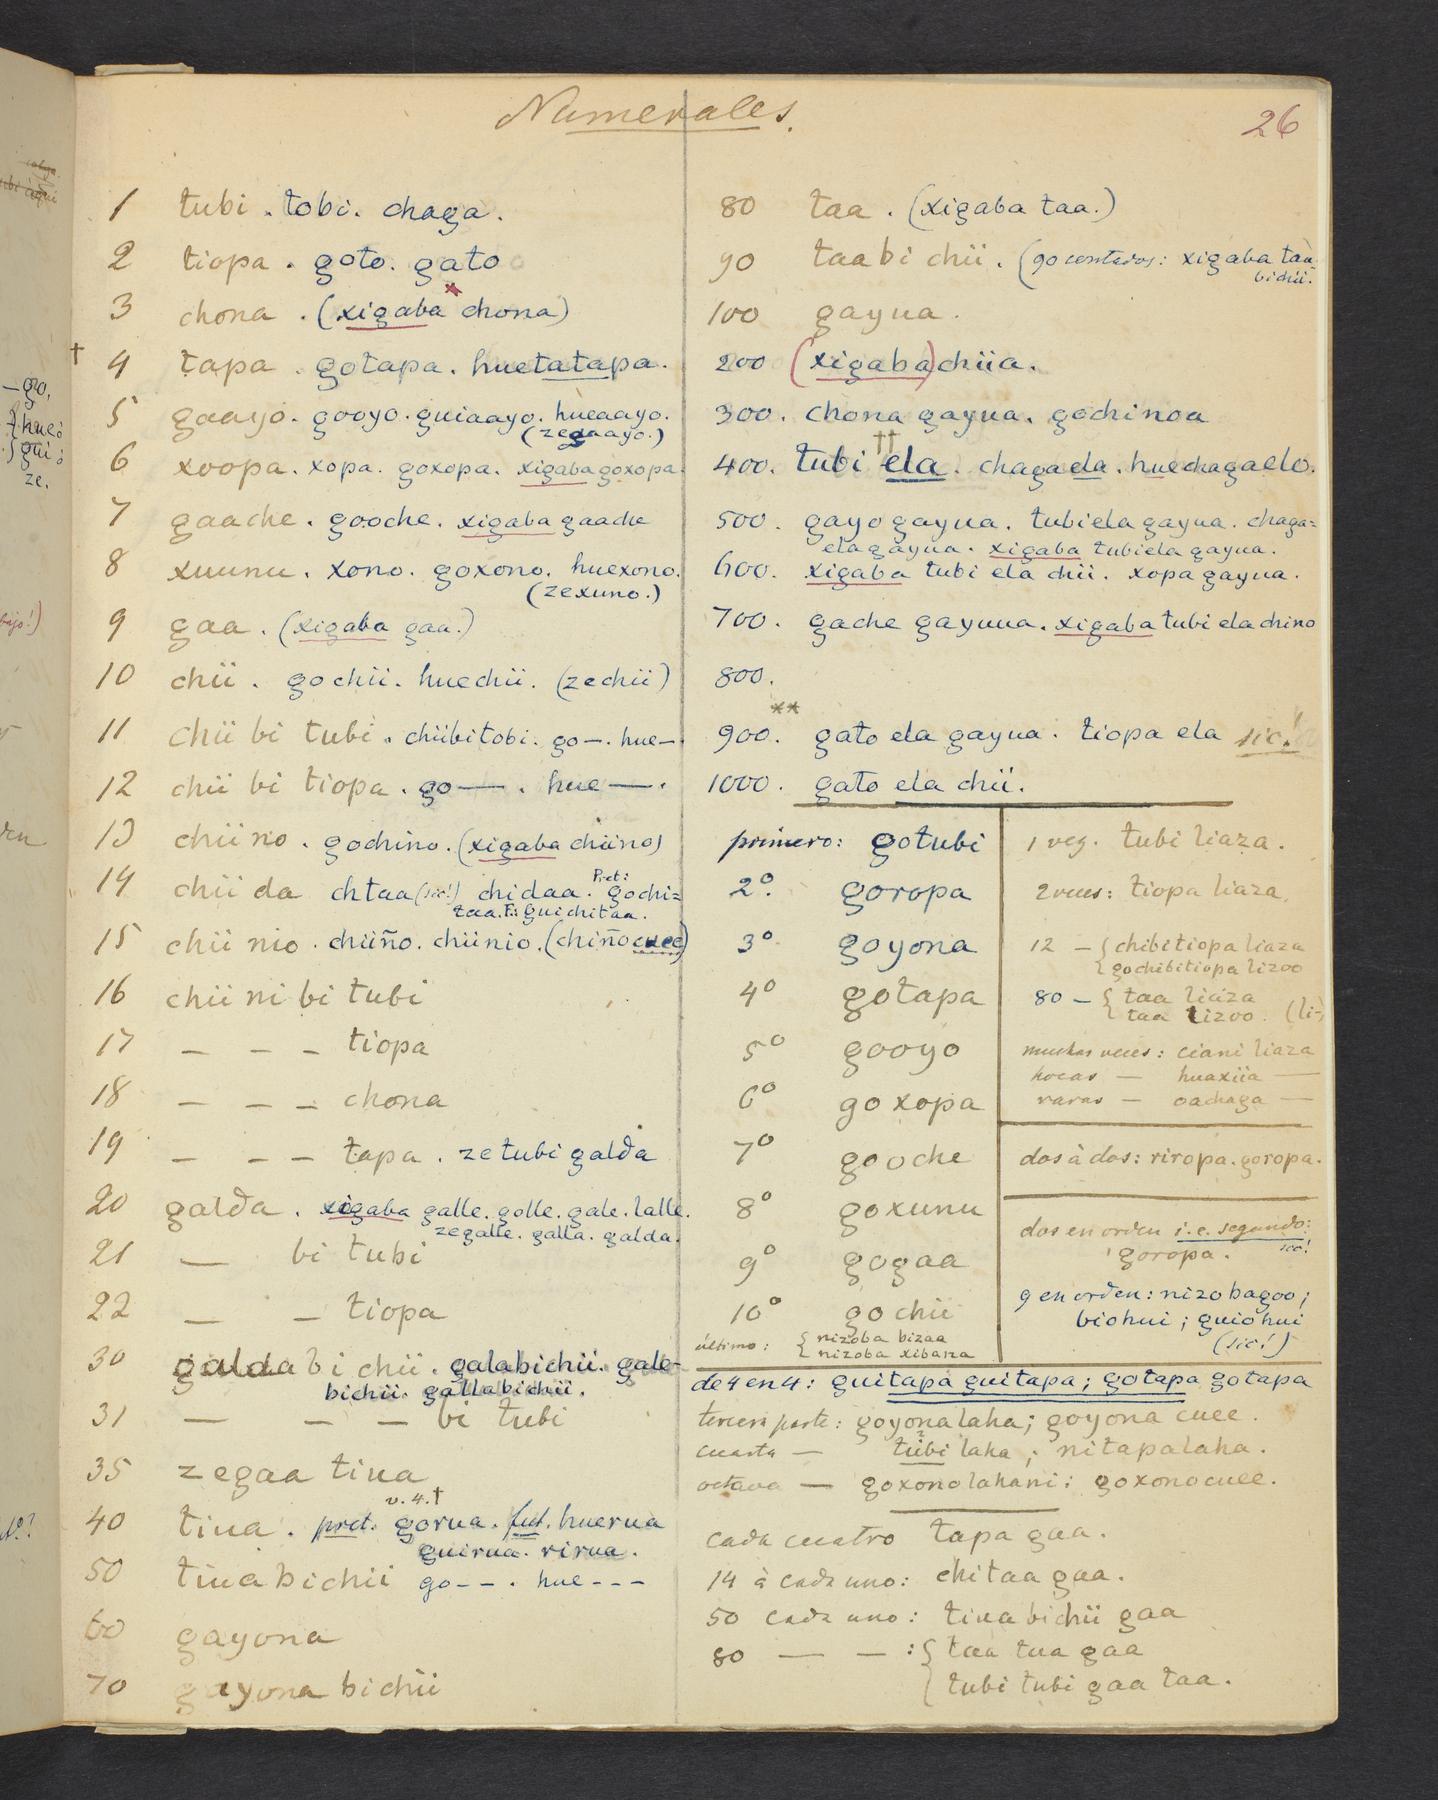 Numerales.
26
1 tubi . tobi. chaga.
2 tiopa . goto. gato
3 chona . (xigaba chona)
4 tapa . gotapa. huetatapa.
5 gaayo. gooyo. guiaayo. hueaayo.
(zegaayo.)
6 xoopa. xopa. goxopa. xigaba goxopa.
7 gaache . gooche. xigaba gaache
8 xuunu . xono. goxono. huexono.
(zexuno.)
9 gaa . (xigaba gaa.)
10 chii . gochii. huechii. (zechii)
11 chii bi tubi . chiibitobi. go—. hue—.
12 chii bi tiopa . go— . hue—.
13 chiino . gochino. (xigaba chiino)
14 chii da chtaa (sic!) chidaa. Pret: gochi=
taa. F.: guichitaa.
15 chii nio . chiiño. chiinio. (chiño cuee)
16 chii ni bi tubi
17 — — — tiopa
18 — — — chona
19 — — — tapa . ze tubi galda
20 galda . xigaba galle. golle. gale. lalle.
zegalle. galla. galda.
21 — bi tubi
22 — — tiopa
30 galda bi chii . galabichii. gale-
bichii. gallabichii.
31 — — — bi tubi
35 zegaa tiua
v. 4.†
40 tiua . pret: gorua. fut. huerua
guirua. rirua.
50 tiua bichii go-- . hue---
60 gayona
70 gayona bichii
80 taa . (xigaba taa.)
90 taa bi chii . (90 contados: xigaba taa
bichii.
100 gayua .
200 (xigaba) chiia.
300. chona gayua. gochinoa
400. tubi ela . chaga ela . huechagaelo.
500. gayo gayua. tubiela gayua. chaga=
ela gayua. xigaba tubiela gayua.
600. xigaba tubi ela chii. xopa gayua.
700. gache gayuua. xigaba tubi ela chino
800.
**
900. gato ela gayua . tiopa ela sic!
1000. gato ela chii.
primero: gotubi
2º. goropa
3º goyona
4º gotapa
5º gooyo
6º goxopa
7º gooche
8º goxunu
9º gogaa
10º gochii
último: { nizoba bizaa
{ nizoba xibaza
1 vez. tubi liaza.
2 veces: tiopa liaza.
12 — { chibitiopa liaza
{ gochibitiopa lizoo
80 — { taa liaza
{ taa lizoo. (li-
muchas veces: ciani liaza
pocas — huaxiia —
varas — oachaga —
dos à dos: riropa. goropa.
dos en orden i.e. segundo:
goropa. sic!
9 en orden: nizobagoo;
biohui; guiohui
(sic!)
de 4 en 4: guitapa guitapa; gotapa gotapa
tercera parte: goyona laha; goyona cuee.
cuarta — tubi laha ; nitapalaha.
octava — goxonolahani; goxonocuee.
cada cuatro tapa gaa.
14 à cada uno: chitaa gaa.
50 cada uno: tiua bichii gaa
80 — — : { taa taa gaa
{ tubi tubi gaa taa.